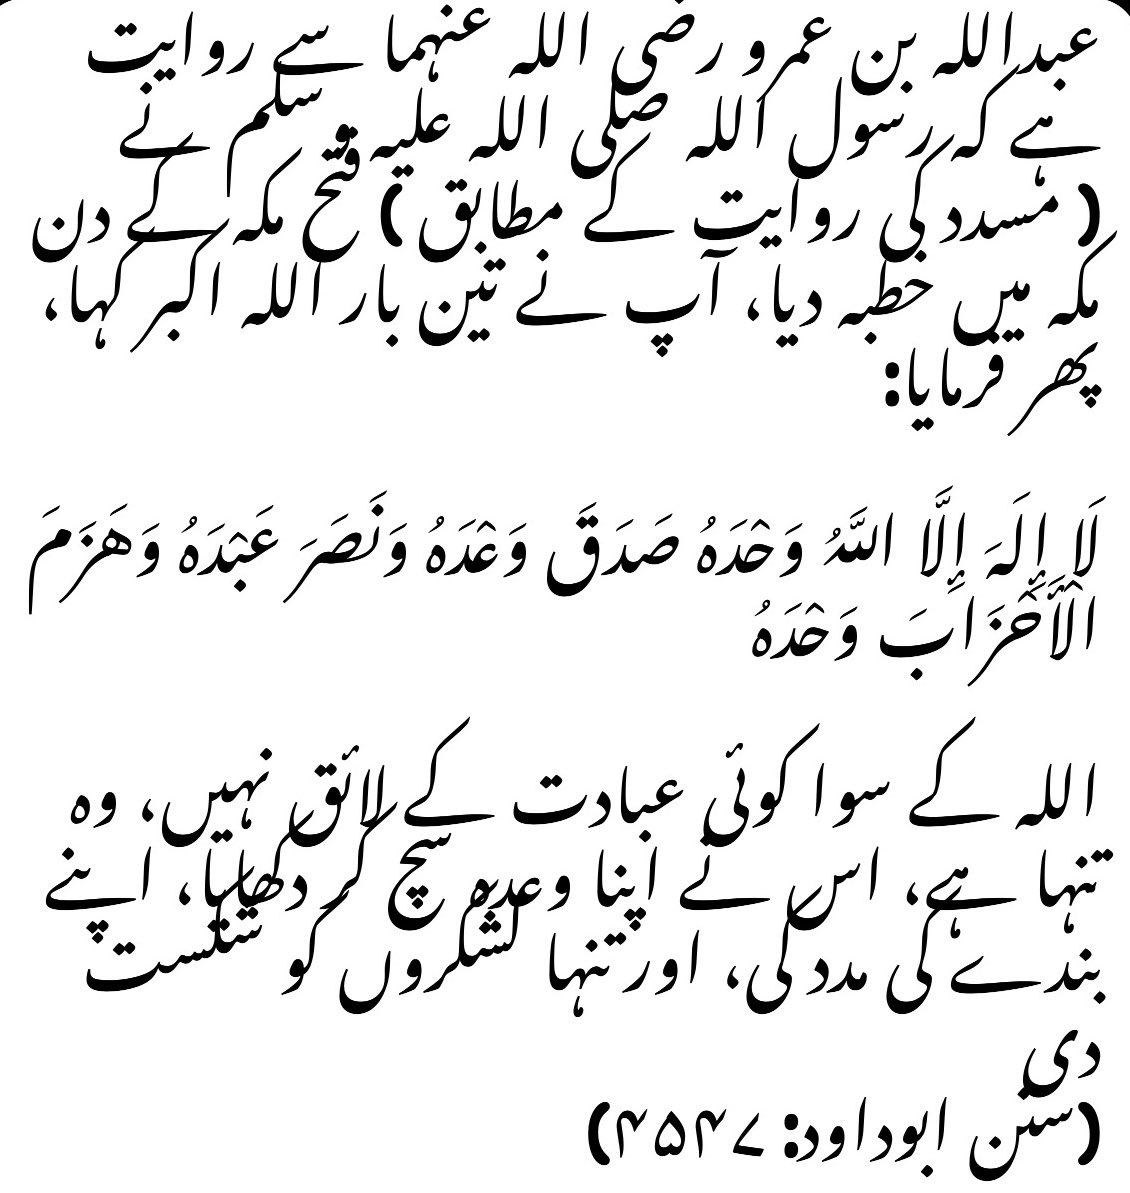 عبداللہ بن عمرو رضی اللہ عنہما سے روایت
ہے کہ رسول اللہ صلی اللہ علیہ وسلم نے
( مسدد کی روایت کے مطابق ) فتح مکہ کے دن
مکہ میں خطبہ دیا، آپ نے تین بار اللہ اکبر کہا،
پھر فرمایا:
لَا إِلَهَ إِلَّا اللَّهُ وَحْدَهُ صَدَقَ وَعْدَهُ وَنَصَرَ عَبْدَهُ وَهَزَمَ
الْأَحْزَابَ وَحْدَهُ
اللہ کے سوا کوئی عبادت کے لائق نہیں، وہ
تنہا ہے، اس نے اپنا وعدہ سچ کر دکھایا، اپنے
بندے کی مدد کی، اور تنہا لشکروں کو شکست
دی
(سنن ابوداود: ۴۵۴۷)